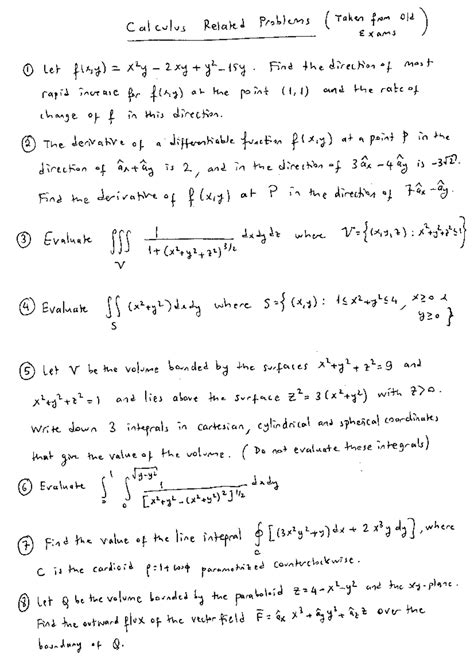 Calculus Related Problems (Taken from old Exams)
① Let f(x,y) = x²y - 2xy + y² - 15y. Find the direction of most
rapid increase for f(x,y) at the point (1,1) and the rate of
change of f in this direction.
② The derivative of a differentiable function f(x,y) at a point P in the
direction of âx+ây is 2, and in the direction of 3âx-4ây is -3√2.
Find the derivative of f(x,y) at P in the direction of 7âx-ây.
③ Evaluate ∭_V 1/(1+(x²+y²+z²)^{3/2}) dxdydz where V={(x,y,z): x²+y²+z²≤1}
④ Evaluate ∬_S (x²+y²)dxdy where S={(x,y): 1≤x²+y²≤4, x≥0 & y≥0}
⑤ Let V be the volume bounded by the surfaces x²+y²+z²=9 and
x²+y²+z²=1 and lies above the surface z²=3(x²+y²) with z>0.
Write down 3 integrals in cartesian, cylindrical and spherical coordinates
that give the value of the volume. (Do not evaluate these integrals)
⑥ Evaluate ∫_0^1 ∫_0^{√(y-y²)} 1/[x²+y²-(x²+y²)²]^{1/2} dxdy
⑦ Find the value of the line integral ∮_C [(3x²y²+y)dx + 2x³y dy], where
C is the cardioid ρ=1+cosφ parametrized counterclockwise.
⑧ Let Q be the volume bounded by the paraboloid z=4-x²-y² and the xy-plane.
Find the outward flux of the vector field F̄=âx x³+ây y³+âz z over the
boundary of Q.